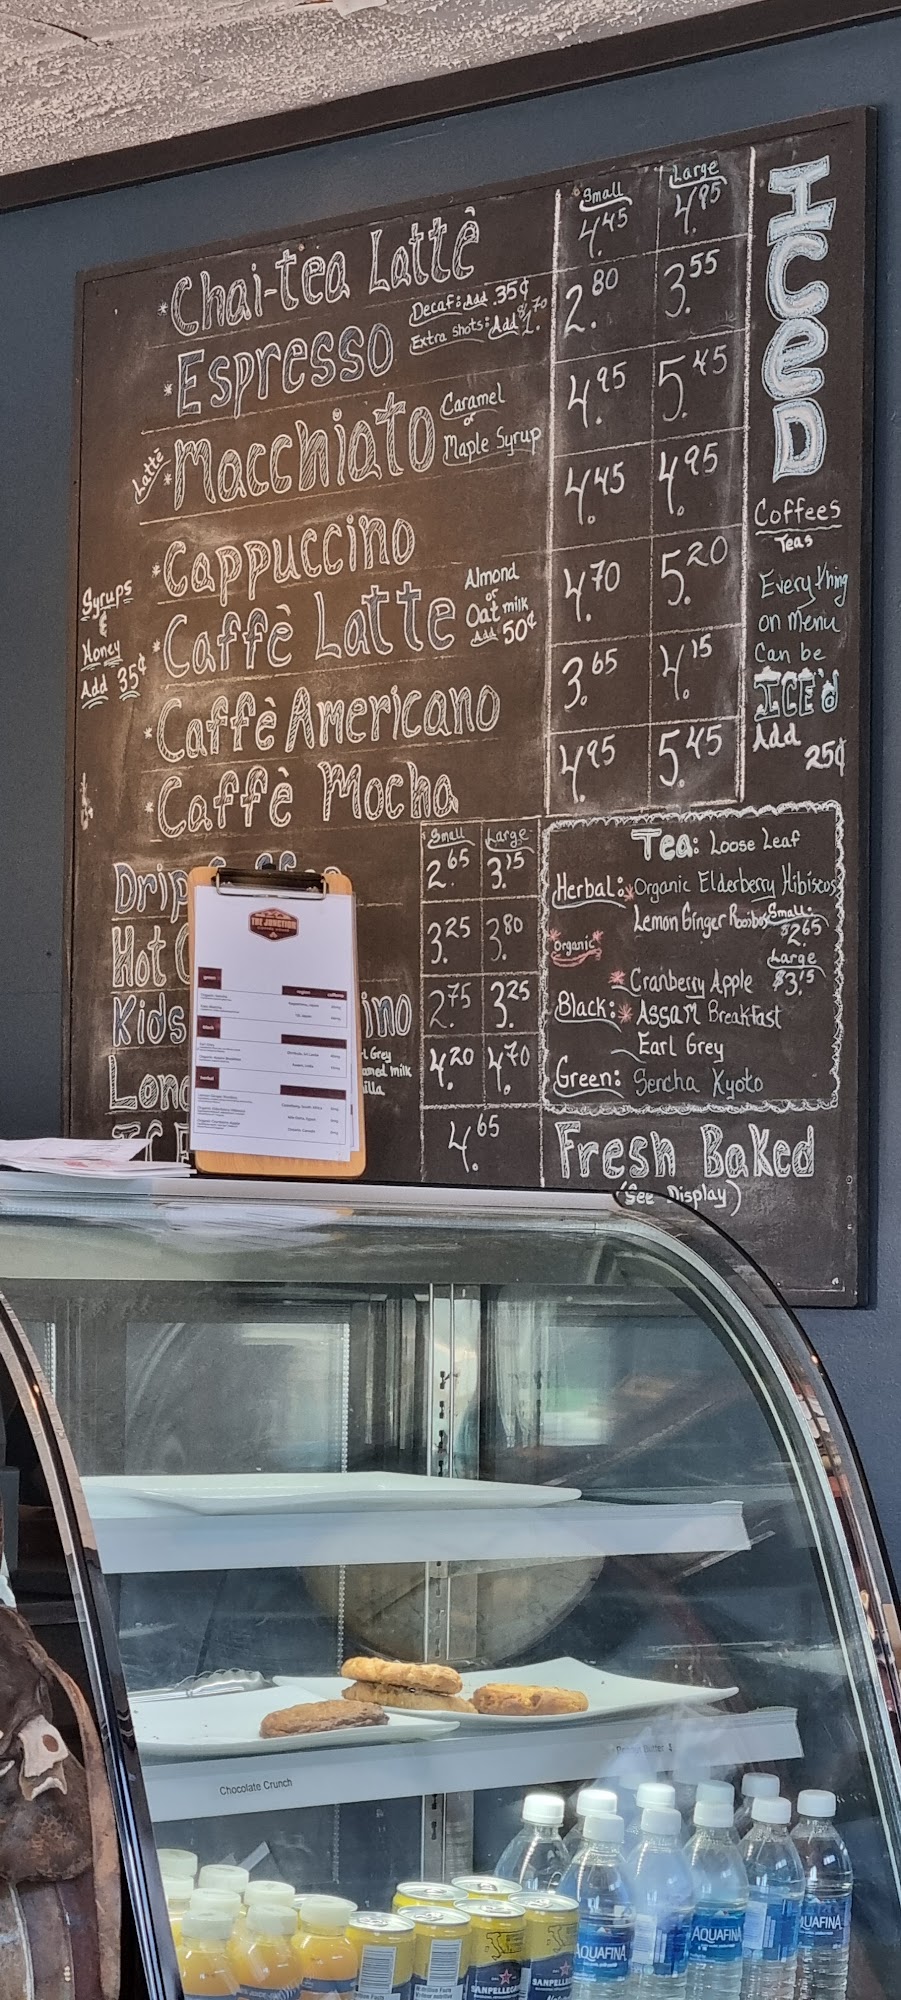 Small Large
*Chai-tea Lattè 4.45 4.95
*Espresso Decaf: Add .35¢ 2.80 3.55
Extra shots: Add $1.70
Lattè *Macchiato Caramel or Maple Syrup 4.95 5.45
*Cappuccino 4.45 4.95
*Caffè Latte Almond or Oat milk Add 50¢ 4.70 5.20
*Caffè Americano 3.65 4.15
*Caffè Mocha 4.95 5.45
Syrups
&
Honey
Add 35¢
Small Large
Drip 2.65 3.15
Hot 3.25 3.80
Kids ino 2.75 3.25
Lon 4.20 4.70
Grey
milk
4.65
ICED
Coffees
Teas
Everything
on Menu
Can be
ICE'd
Add
25¢
Tea: Loose Leaf
Herbal: *Organic Elderberry Hibiscus
Lemon Ginger Rooibos
Small:
$2.65
Large
$3.15
Organic
*Cranberry Apple
Black: *Assam Breakfast
Earl Grey
Green: Sencha Kyoto
Fresh Baked
(See Display)
THE JUNCTION
green region caffeine
black
herbal
Chocolate Crunch
AQUAFINA
AQUAFINA
AQUAFINA
UAFINA
SANPELLEG
SANPELLEG